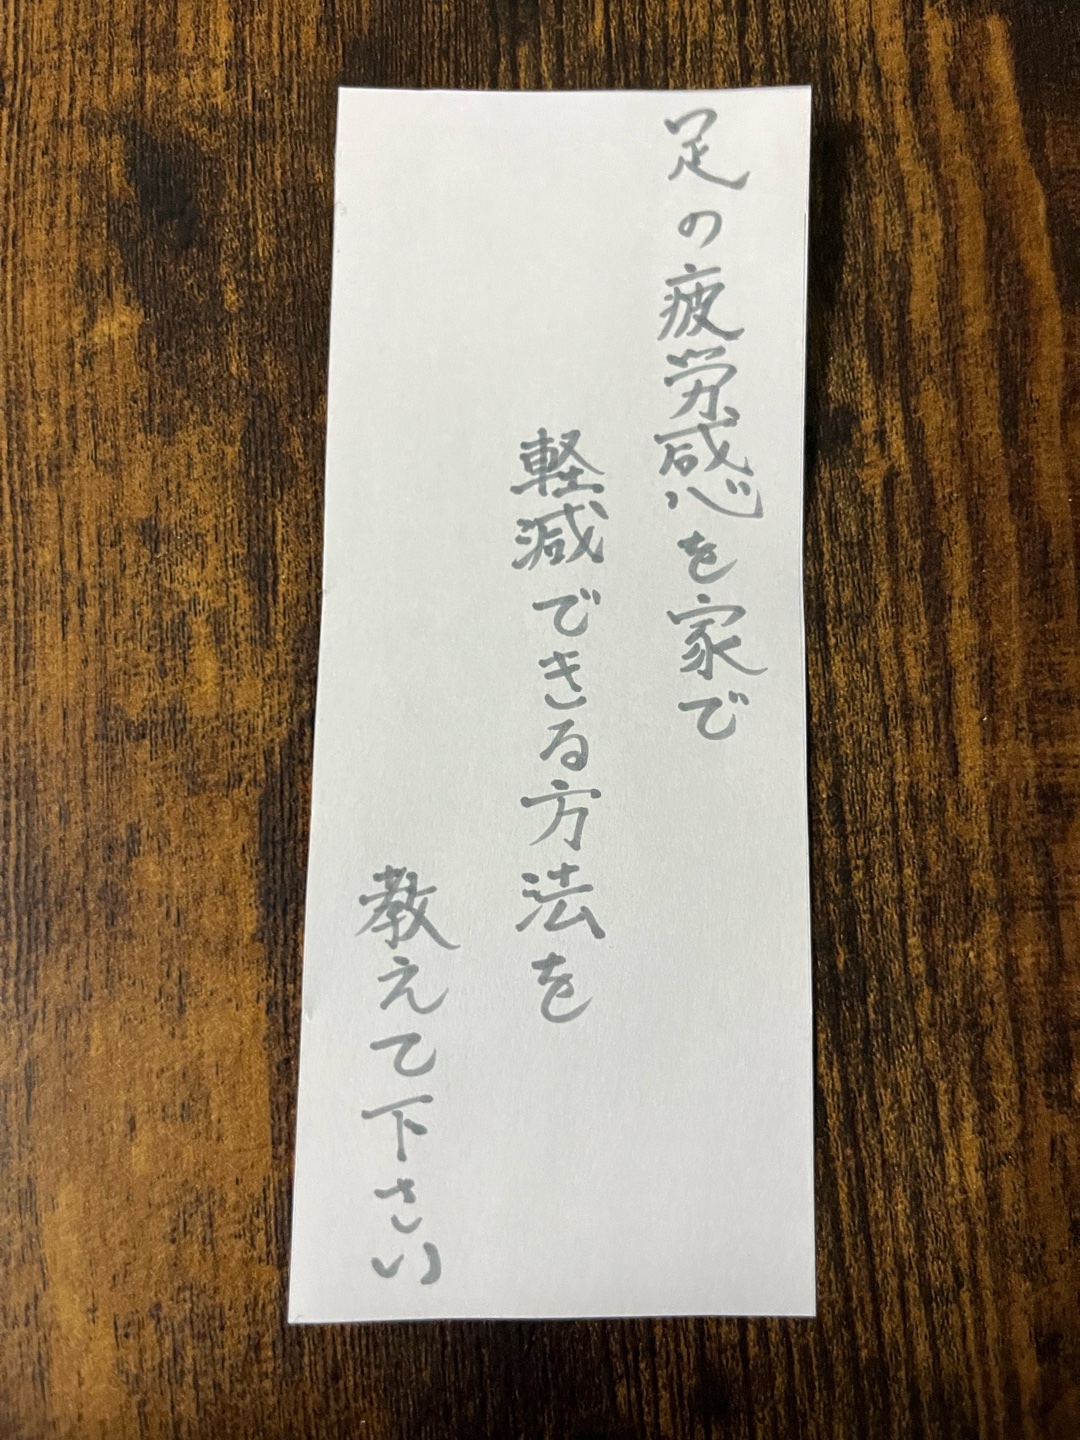 足の疲労感を家で
軽減できる方法を
教えて下さい